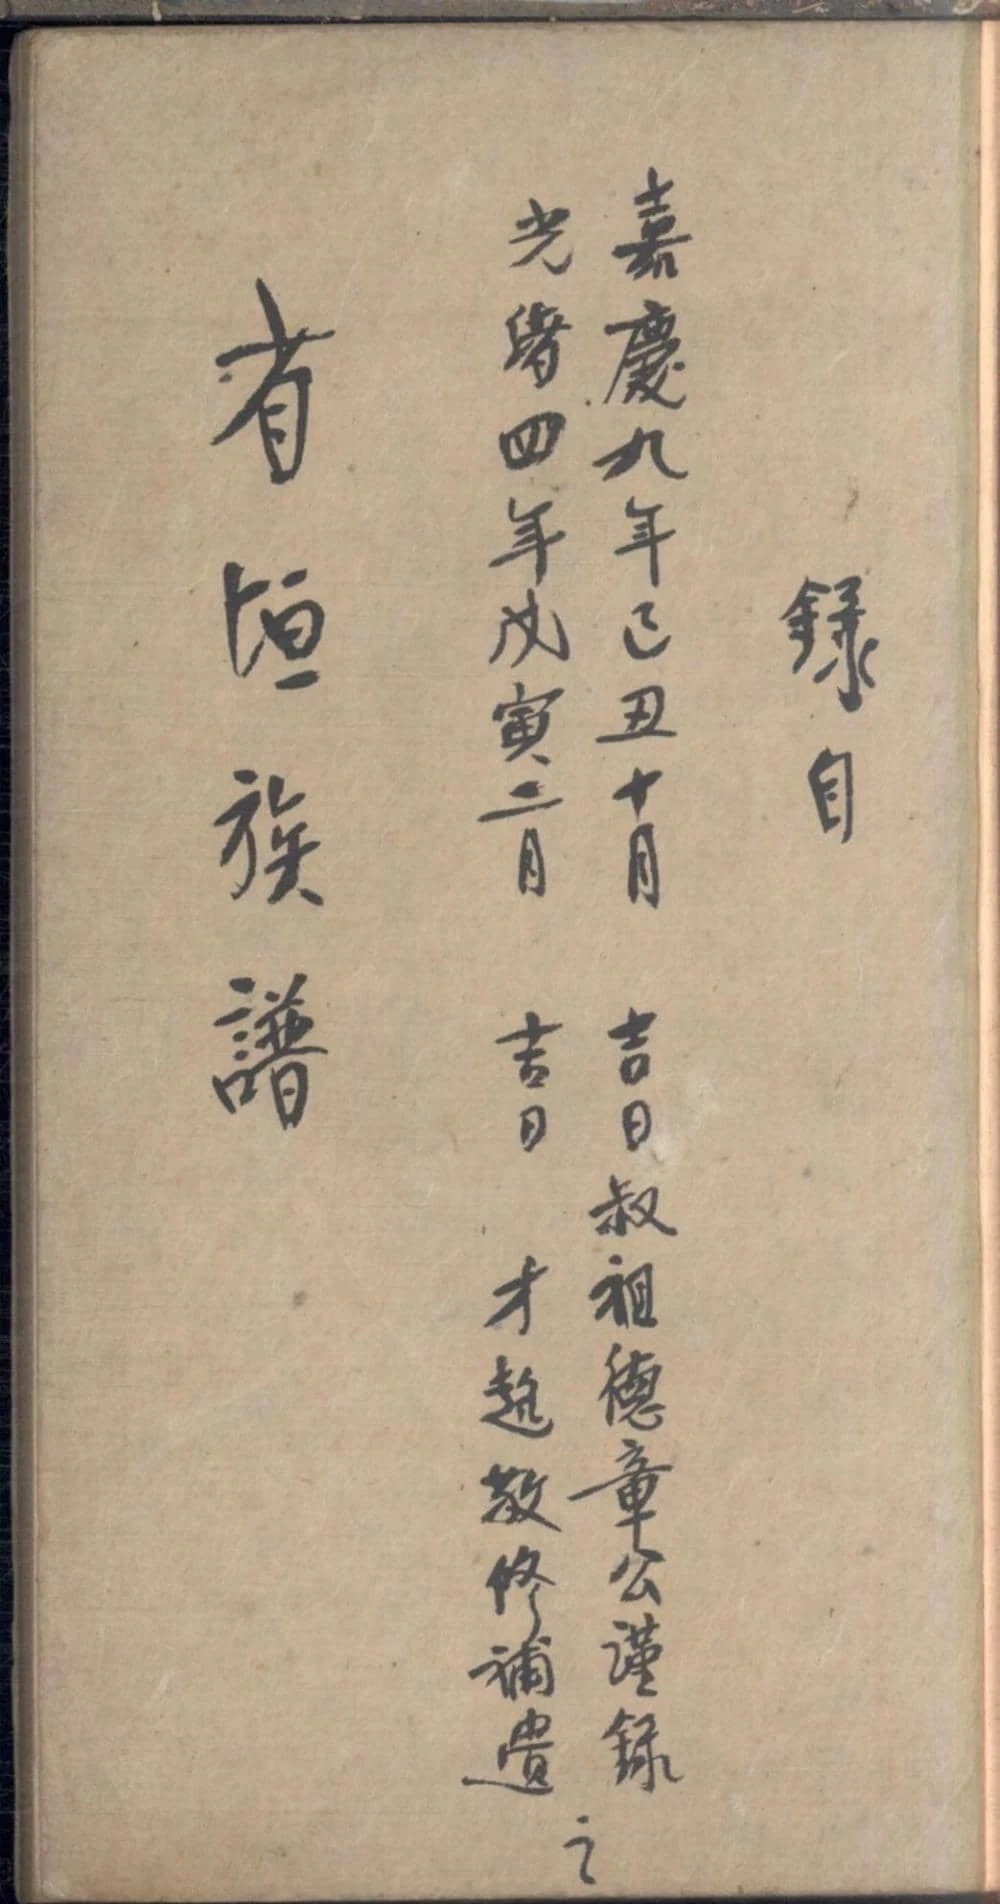 録自
嘉慶九年己丑十月 吉日叔祖德章公謹録
光緒四年戊寅二月 吉日 才趁敬修補遺
之
省垣族譜